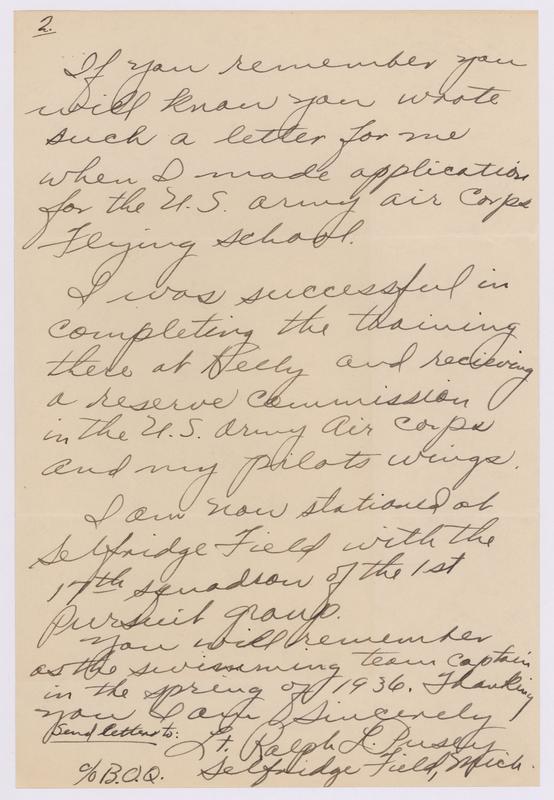 2.
If you remember you
will know you wrote
such a letter for me
when I made application
for the U.S. army air Corps
Flying school.
I was successful in
completing the training
there at Kelly and recieving
a reserve commission
in the U.S. Army Air Corps
and my pilots wings.
I am now stationed at
Selfridge Field with the
17th squadron of the 1st
Pursuit group.
You will remember
as the swimming team captain
in the spring of 1936. Thanking
you I am Sincerely
Send letter to: Lt. Ralph L. Pusey
c/o B.O.Q. Selfridge Field, Mich.